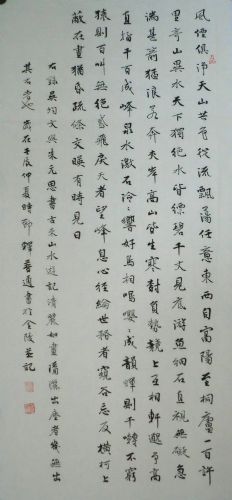 風煙俱淨天山共色從流飄蕩任意東西自富陽至桐廬一百許
里奇山異水天下獨絕水皆縹碧千丈見底游魚細石直視無礙急
湍甚箭猛浪若奔夾岸高山皆生寒樹負勢競上互相軒邈爭高
直指千百成峰泉水激石泠泠響好鳥相鳴嚶嚶成韻蟬則千轉不窮
猿則百叫無絕鳶飛戾天者望峰息心經綸世務者窺谷忘反橫柯上
蔽在晝猶昏疏條交映有時見日
右錄吳均文與朱元思書古來山水遊記清麗如畫瀟灑出塵者幾無出
其右者也 歲在壬辰仲夏時 書於金陵並記